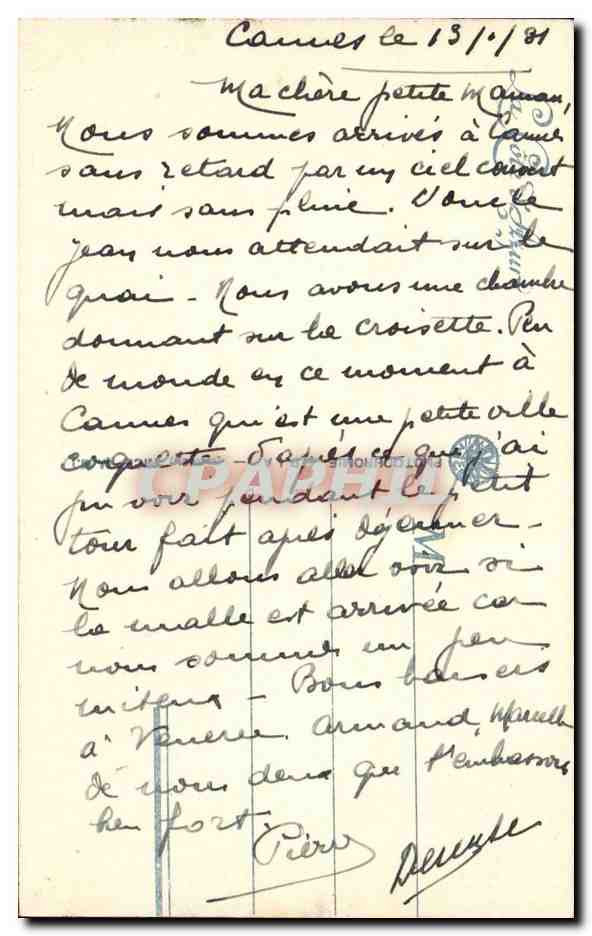 Cannes le 13/1/31
Ma chère petite Maman,
Nous sommes arrivés à Cannes
sans retard par un ciel couvert
mais sans pluie. L'oncle
Jean nous attendait sur le
quai - Nous avons une chambre
donnant sur la croisette. Peu
de monde en ce moment à
Cannes qu'est une petite ville
coquette d'après ce que j'ai
pu voir pendant le petit
tour fait après déjeuner -
Nous allons aller voir si
la malle est arrivée car
nous sommes un peu
miteux - Bons baisers
à Armand, Marcelle
de nous deux qui t'embrassons
bien fort.
Pierre
CPAPHIL